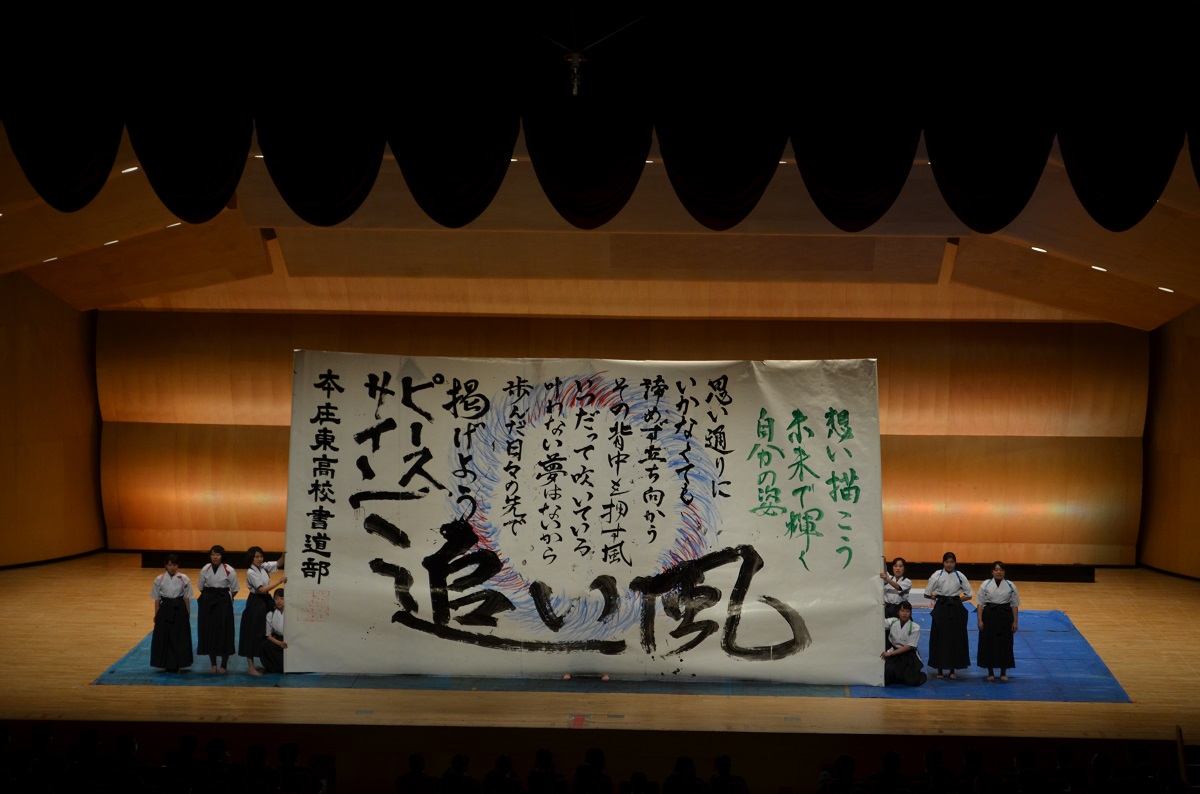 想い描こう
未来で輝く
自分の姿
思い通りに
いかなくても
諦めず立ち向かう
その背中を押す風
いつだって吹いている
叶わない夢はないから
歩んだ日々の先で
掲げよう
ピース
サイン
追い風
本庄東高校書道部